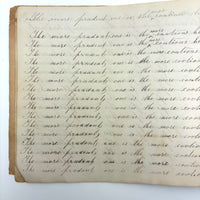 The more prudent one is the more cautious
The more prudentions one is the more cautions h
The more prudent one is the more cautions
The more prudent one is the more cautions
The more prudent, one is the more cautions
The more prudent, one is the more cautions
The more prudent, one is the more cautions
The more prudent, one is the more cautions
The more prudent, one is the more cautions
The more prudent, one is the more cautions
The more prudent, one is the more cautions
The more prudent, one is the more cautions
The more prudent, one is the more cautions
The more prudent, one is the more cautions